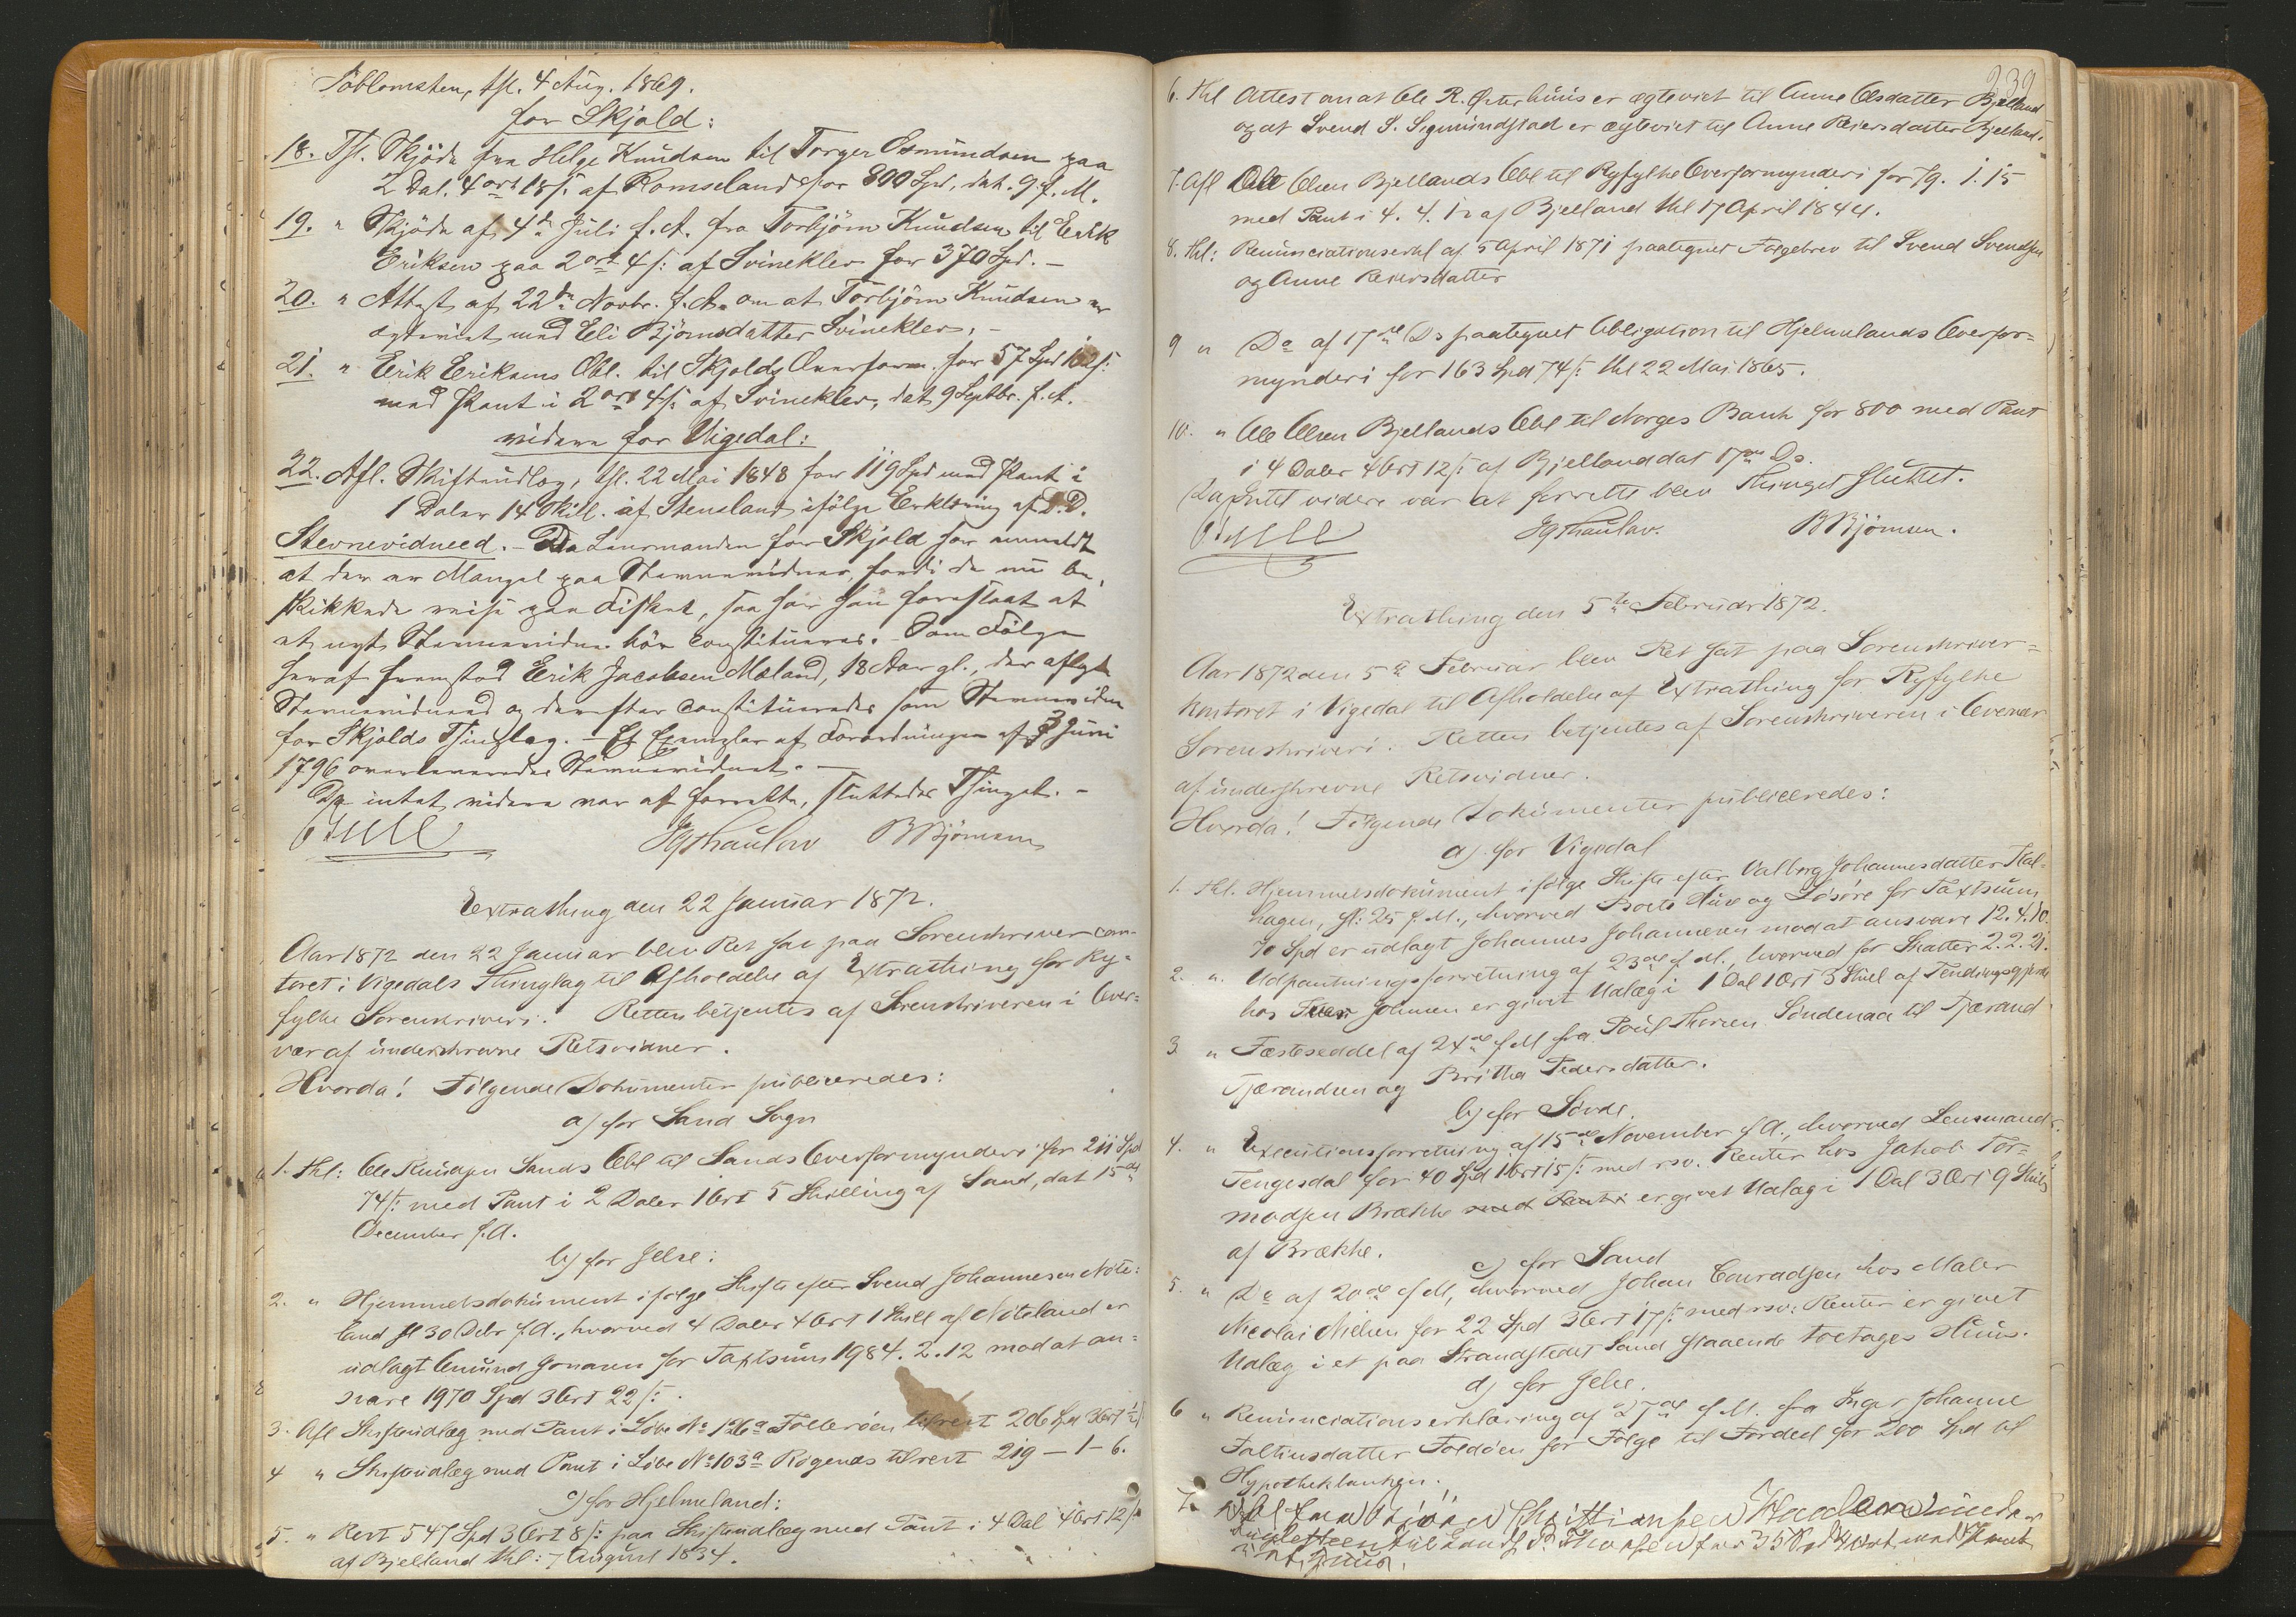 Töblomsten, thl. 4 Aug. 1869.
for Skjold:
18. Thl. Skjöde fra Helge Knudsen til Torger Osmundsen paa
2 Dal. 4 ort 18 s: af Romseland for 800 Spd, dat. 9 f. M.
19. " Skjöde af 4de Juli f. A. fra Torbjörn Knudsen til Erik
Eriksen paa 2 ort 4 s: af Svinekler for 370 Spd. –
20. " Attest af 22de Novbr. f. A. om at Torbjörn Knudsen er
ægteviet med Eli Björnsdatter Svinekler. –
21. " Erik Eriksens Obl. til Skjolds Overform. for 57 Spd 102 s:
med Pant i 2 ort 4 s: af Svinekler, dat 9 Septbr. f. A.
videre for Vigedal:
22. Afl. Skifteudlæg, thl. 22 Mai 1848 for 119 Spd med Pant i
1 Daler 14 Skill. af Stensland ifölge Erklæring af D. D.
Stevnevidneed. – Da Lensmanden for Skjold har anmeldt
at der er Mangel paa Stevnevidner, fordi de nu be-
skikkede reise paa Fisket, saa har han foreslaaet at
et nyt Stevnevidne bör constitueres. – Som Fölge
heraf fremstod Erik Jacobsen Mæland, 18 Aar gl., der aflagde
Stevnevidneed og derefter constitueredes som Stevnevidne
for Skjolds Thinglag. – Et Exemplar af Forordningen af 3 Juni
1796 overleveredes Stevnevidnet. –
Da intet videre var at forrette, sluttedes Thinget. –
JgThaulow BBjörnsen
Extrathing den 22 Januar 1872.
Aar 1872 den 22 Januar blev Ret sat paa Sorenskrivercon-
toret i Vigedals Thinglag til Afholdelse af Extrathing for Ry-
fylke Sorenskriveri. Retten betjentes af Sorenskriveren i Over-
vær af underskrevne Retsvidner.
Hvorda! Fölgende Dokumenter publiceredes:
a) for Sand Sogn
1. thl: Ole Knudsen Sands Obl til Sands Overformynderi for 211 Spd
74 s: med Pant i 2 Daler 1 Ort 5 Skilling af Sand, dat 15de
December f. A.
b) for Jelse:
2. " Hjemmelsdokument ifölge Skifte efter Svend Johannesen Nöte-
land sl 30 Debr f. A., hvorved 4 Daler 4 Ort 1 Skill af Nöteland er
udlagt Amund Jonasen for Taxtsum 1984. 2. 12 mod at an-
svare 1970 Spd 3 Ort 22 s:.
3. Afl Skifteudlæg med Pant i Löbe No 126a Folleröen tilrest 206 Spd 3 Ort
4 " Skifteudlæg med Pant i Löbe No 103a Rögenæs tilrest 219 – 1 – 6.
c) for Hjelmeland:
5. " Rest 547 Spd 3 Ort 8 s: paa Skifteudlæg med Pant i 4 Dal 4 Ort 12 s:
af Bjelland thl: 7 August 1834.
239
6. thl Attest om at Ole R. Österhuus er ægteviet til Anne Olsdatter Bjelland
og at Svend S. Sigmundstad er ægteviet til Anne Reiersdatter Bjelland.
7. Afl Ole Olsen Bjellands Obl til Ryfylke Overformynderi for 79. 1. 15
med Pant i 4. 4. 12 af Bjelland thl 17 April 1844.
8. thl: Renunciationserkl af 5 April 1871 paategnet Fölgebrev til Svend Svendsen
og Anne Reiersdatter
9 " Do af 17de Ds paategnet Obligation til Hjelmelands Overfor-
mynderi for 163 Spd 74 s: thl 22 Mai 1865.
10. " Ole Olsen Bjellands Obl til Norges Bank for 800 med Pant
i 4 Daler 4 Ort 12 s: af Bjelland dat 17de Ds.
Da Intet videre var at forrette blev Thinget sluttet.
JgThaulow. BBjörnsen.
Extrathing den 5te Februar 1872.
Aar 1872 den 5te Februar blev Ret sat paa Sorenskriver-
kontoret i Vigedal til Afholdelse af Extrathing for Ryfylke
Sorenskriveri. Retten betjentes af Sorenskriveren i Overvær
af underskrevne Retsvidner.
Hvorda! Fölgende Dokumenter publiceredes:
a) for Vigedal
1. thl. Hjemmelsdokument ifölge Skifte efter Valborg Johannesdatter
hagen, sl: 25 f. M., hvorved Boets Huse og Lösöre for Taxtsum
70 Spd er udlagt Johannes Johannesen mod at ansvare 12. 4. 10.
2. " Udpantningsforretning af 23de f. M., hvorved for Skatter 2. 2. 21.
hos Johnsen er givet Udlæg i 1 Dal 1 Ort 3 Skill af
3. " Fæsteseddel af 24de f M fra Poul Thorsen Söndenaa til Tjærand
Tjærandsen og Britha Pedersdatter.
b) for Sövde.
4. " Executionsforretning af 15de November f A., hvorved Lensmand
Tengesdal for 40 Spd 1 Ort 15 s: med rsv. Renter hos Jakob Tor-
modsen Brække med Pant i er givet Udlæg i 1 Dal 3 Ort 9 Skill
af Brække.
c) for Sand
5. " Do af 20de f M, hvorved Johan Conradsen hos Maler
Nicolai Nielsen for 22 Spd 3 Ort 17 s: med rsv: Renter er givet
Udlæg i et paa Strandstedet Sand staaende toetages Huus.
d) for Jelse.
6 " Renunciationserklæring af 27de f. M. fra Inger Johanne
Faltinsdatter Foldöen for Fölge til Fordel for 200 Spd til
Hypothekbanken.
7.
for 35 Spd 4 ort med Pant
i et Huus.